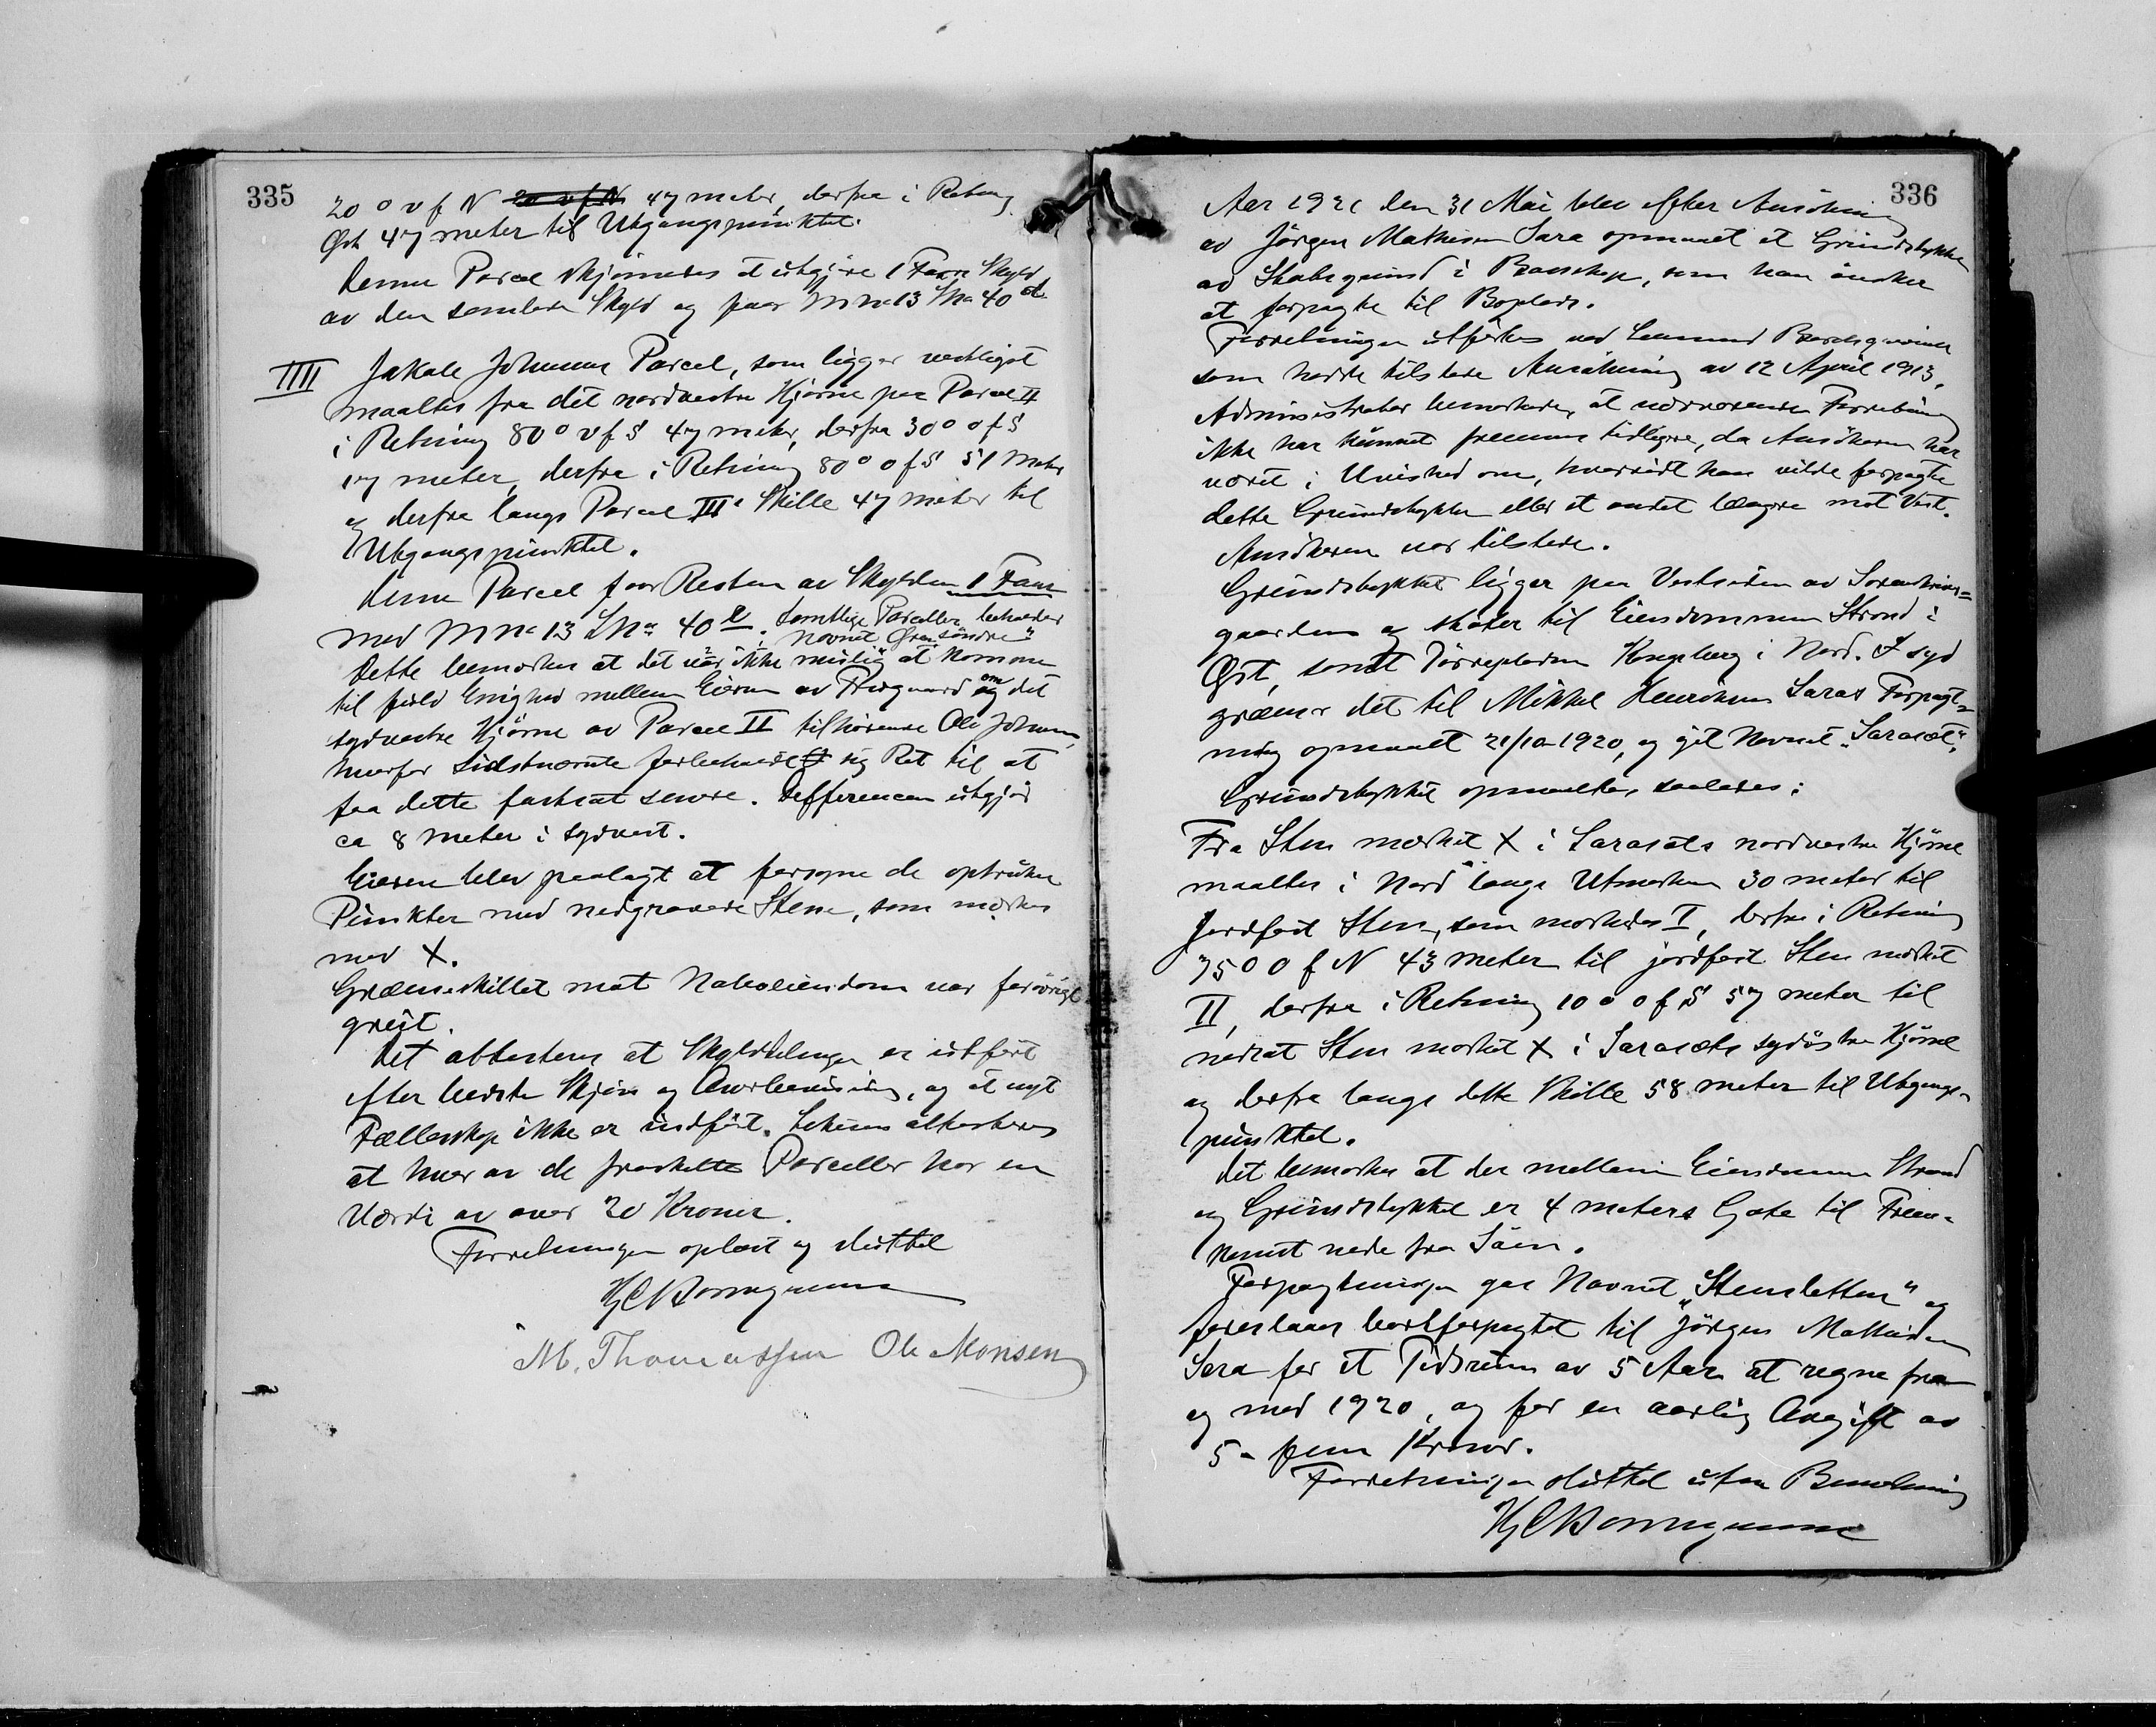 335
20° v f N 20 v f N 47 meter, derfra i Retning
Øst 47 meter til Utgangspunktet.
Denne Parcel skjønnedes at utgjøre 1 Fæm Skyld
av den samlede Skyld og faar M no 13 S no 40 d.
IIII Jakole Johnsens Parcel, som ligger vestligst
maaltes fra det nordvestre Hjørne paa Parcel II
i Retning 80° v f S 47 meter, derfra 30° o f S
17 meter, derfra i Retning 80° o f S 51 meter
og derfra langs Parcel III's Skille 47 meter til
Utgangspunktet.
Denne Parcel faar Resten av Skylden 1 Fæm
med M no 13 S no 40 e. Samtlige Parceller beholder
Navnet Øren søndre"
Dette bemerkes at det var ikke mulig at komme
til fuld Enighed mellem Eieren av og om det
sydvestre Hjørne av Parcel II tilhørende Ole Johnsen,
hvorfor sidstnævnte forbeholdt sig Ret til at
faa dette fastsat senere. Defferencen utgjør
ca 8 meter i sydvest.
Eieren blev paalagt at forsyne de optrukne
Punkter med nedgravede Stene, som merkes
med X.
Grænseskillet mot Naboeiendom var forøvrigt
greit.
Det attesteres at Skylddelingen er utført
efter bedste Skjøn og Overbevisning, og at nyt
Fællesskap ikke er indført. Likesaa attesteres
at hver av de fraskilte Parceller har en
Værdi av over 20 Kroner.
Forretningen oplæst og sluttet
M. Thomassen Ole Monsen
336
Aar 1921 den 31 Mai blev efter Ansøkning
av Jørgen Mathisen Sara opmaalt et Grundstykke
av Statsgrund i , som han ønsker
at forpagte til Boplads.
Forretningen utførtes ved Lensmand
som hadde tilstede Ansøkning av 12 April 1913,
Administrator bemerkede, at nærværende Forretning
ikke har kunnet fremmes tidligere, da Ansøkeren har
været i Uvished om, hvorvidt han vilde forpagte
dette Grundstykke eller et andet længere mot Vest.
Ansøkeren var tilstede.
Grundstykket ligger paa Vestsiden av Sorenskriver=
gaarden og støter til Eiendommen Strand i
Øst, samt Tørrepladsen Kongsberg i Nord. I syd
grænser det til Mikkel Henriksen Saras Forpagt=
ning opmaalt 21/10 1920, og git Navnet „Sarasæt".
Grundstykket opmaaltes saaledes:
Fra Sten merket X i Sarasæts nordvestre Hjørne
maaltes i Nord langs Utmarken 30 meter til
Jordfast Sten, som merkedes I, derfra i Retning
75° o f N 43 meter til jordfast Sten merket
II, derfra i Retning 10° o f S 57 meter til
nedsat Sten merket X i Sarasæts sydøstre Hjørne
og derfra langs dette Skille 58 meter til Utgangs=
punktet.
Det bemerkes at der mellem Eiendommen Strand
og Grundstykket er 4 meters Gate til Frem=
komst nede fra Søen.
Forpagtningen gis Navnet „Stensletten" og
foreslaaes bortforpagtet til Jørgen Mathisen
Sara for et Tidsrum av 5 Aar at regne fra
og med 1920, og for en aarlig Avgift av
5 - fem Kroner.
Forretningen sluttet uten Bemerkning